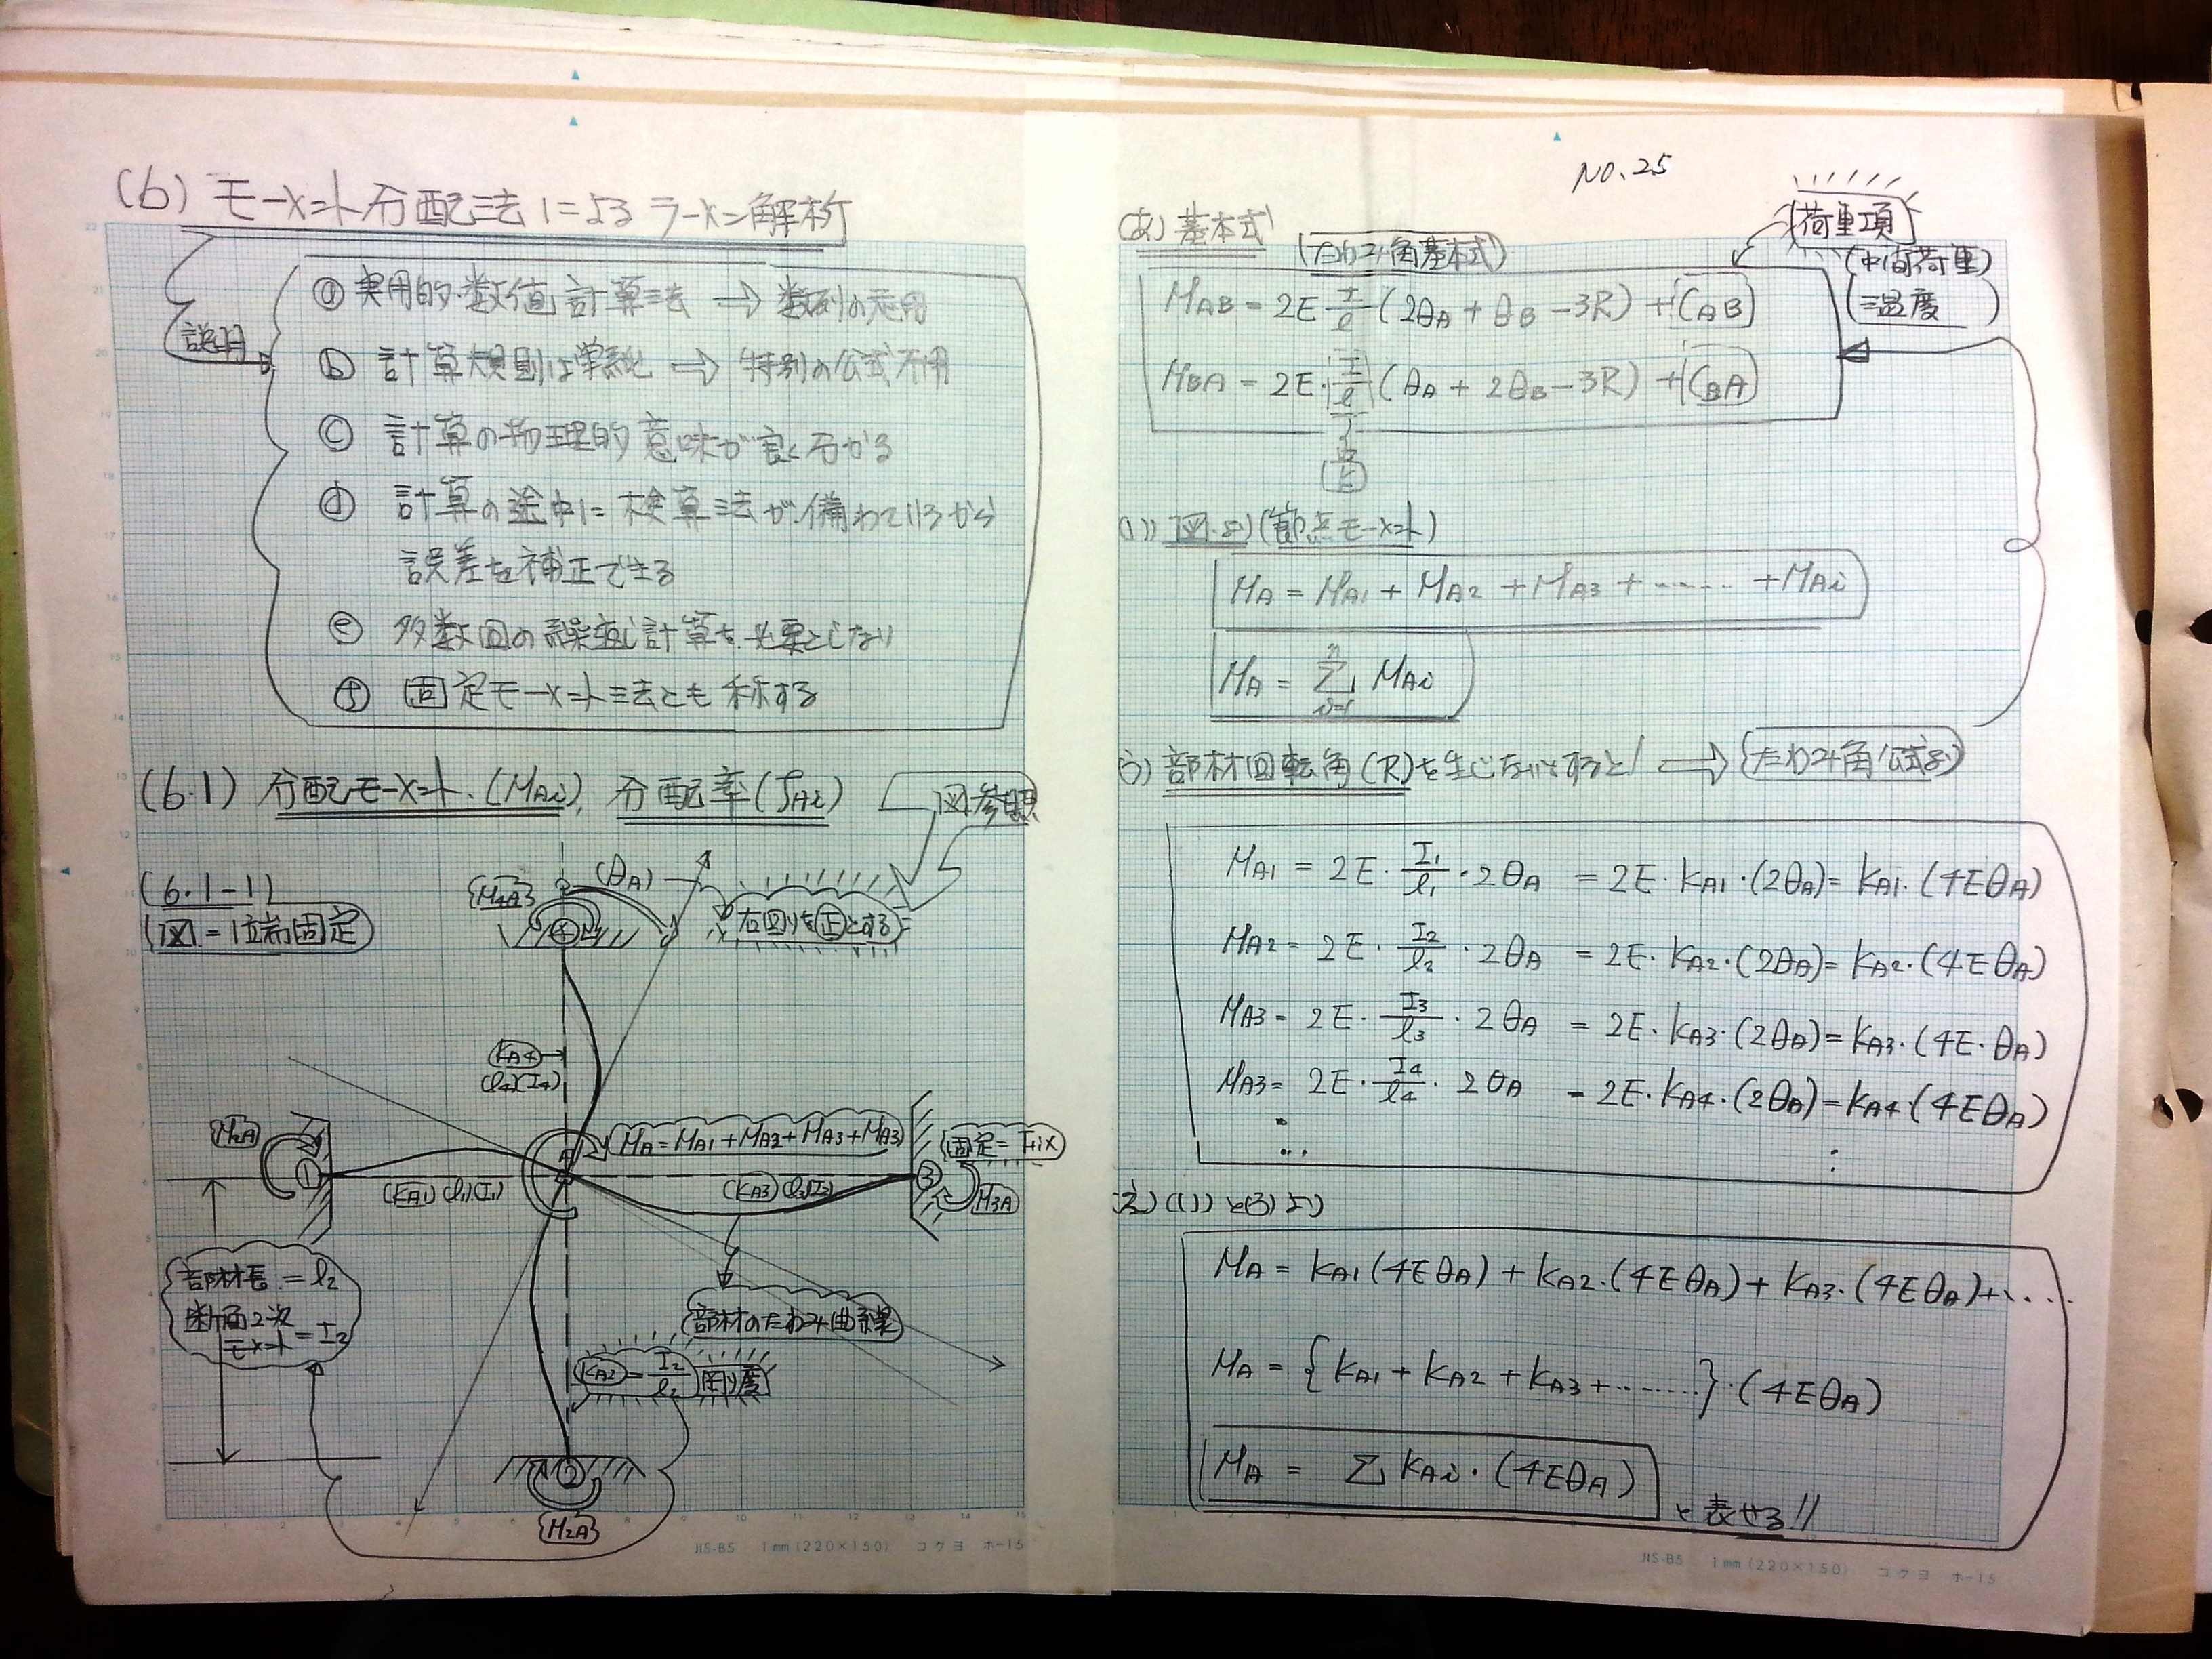 NO.25
(6) モーメント分配法によるラーメン解析
説明
ⓐ 実用的数値計算法 → 数列の応用
ⓑ 計算規則は単純 → 特別の公式不用
ⓒ 計算の物理的意味が良く分かる
ⓓ 計算の途中に検算法が備わているから
誤差を補正できる
ⓔ 多数回の繰返し計算を必要としない
ⓕ 固定モーメント法とも称する
(6.1) 分配モーメント.(MAi), 分配率(fAi)
図参照
(6.1-1)
(図=1端固定)
M4A
(θA)
右回りを正とする
④
KA4
(l4)(I4)
M2A
①
A
MA=MA1+MA2+MA3+MA3
固定=Fix
(KA1)(l1)(I1)
(KA3)(l3)(I3)
③
M3A
部材長=l2
断面2次
モーメント=I2
部材のたわみ曲線
KA2=I2/l2 剛度
②
M2A
(あ) 基本式
(たわみ角基本式)
荷重項
(中間荷重)
(温度)
MAB = 2E I/l (2θA + θB - 3R) + CAB
MBA = 2E・I/l (θA + 2θB - 3R) + CBA
k
(い) 図より(節点モーメント)
MA = MA1 + MA2 + MA3 + ‥‥‥ + MAi
MA = Σ MAi
n
i=1
う) 部材回転角(R)を生じないとすると! ⇒ (たわみ角公式より)
MA1 = 2E・I1/l1・2θA = 2E・KA1・(2θA) = KA1・(4EθA)
MA2 = 2E・I2/l2・2θA = 2E・KA2・(2θA) = KA2・(4EθA)
MA3 = 2E・I3/l3・2θA = 2E・KA3・(2θA) = KA3・(4E・θA)
MA3 = 2E・I4/l4・2θA = 2E・KA4・(2θA) = KA4・(4EθA)
え) (い)と(う)より
MA = KA1(4EθA) + KA2・(4EθA) + KA3・(4EθA)+‥‥
MA = {KA1 + KA2 + KA3 +‥‥‥}・(4EθA)
MA = Σ KAi・(4EθA) と表せる!!
JIS-B5 1mm(220×150) コクヨ ホ-15
JIS-B5 1mm(220×150) コクヨ ホ-15